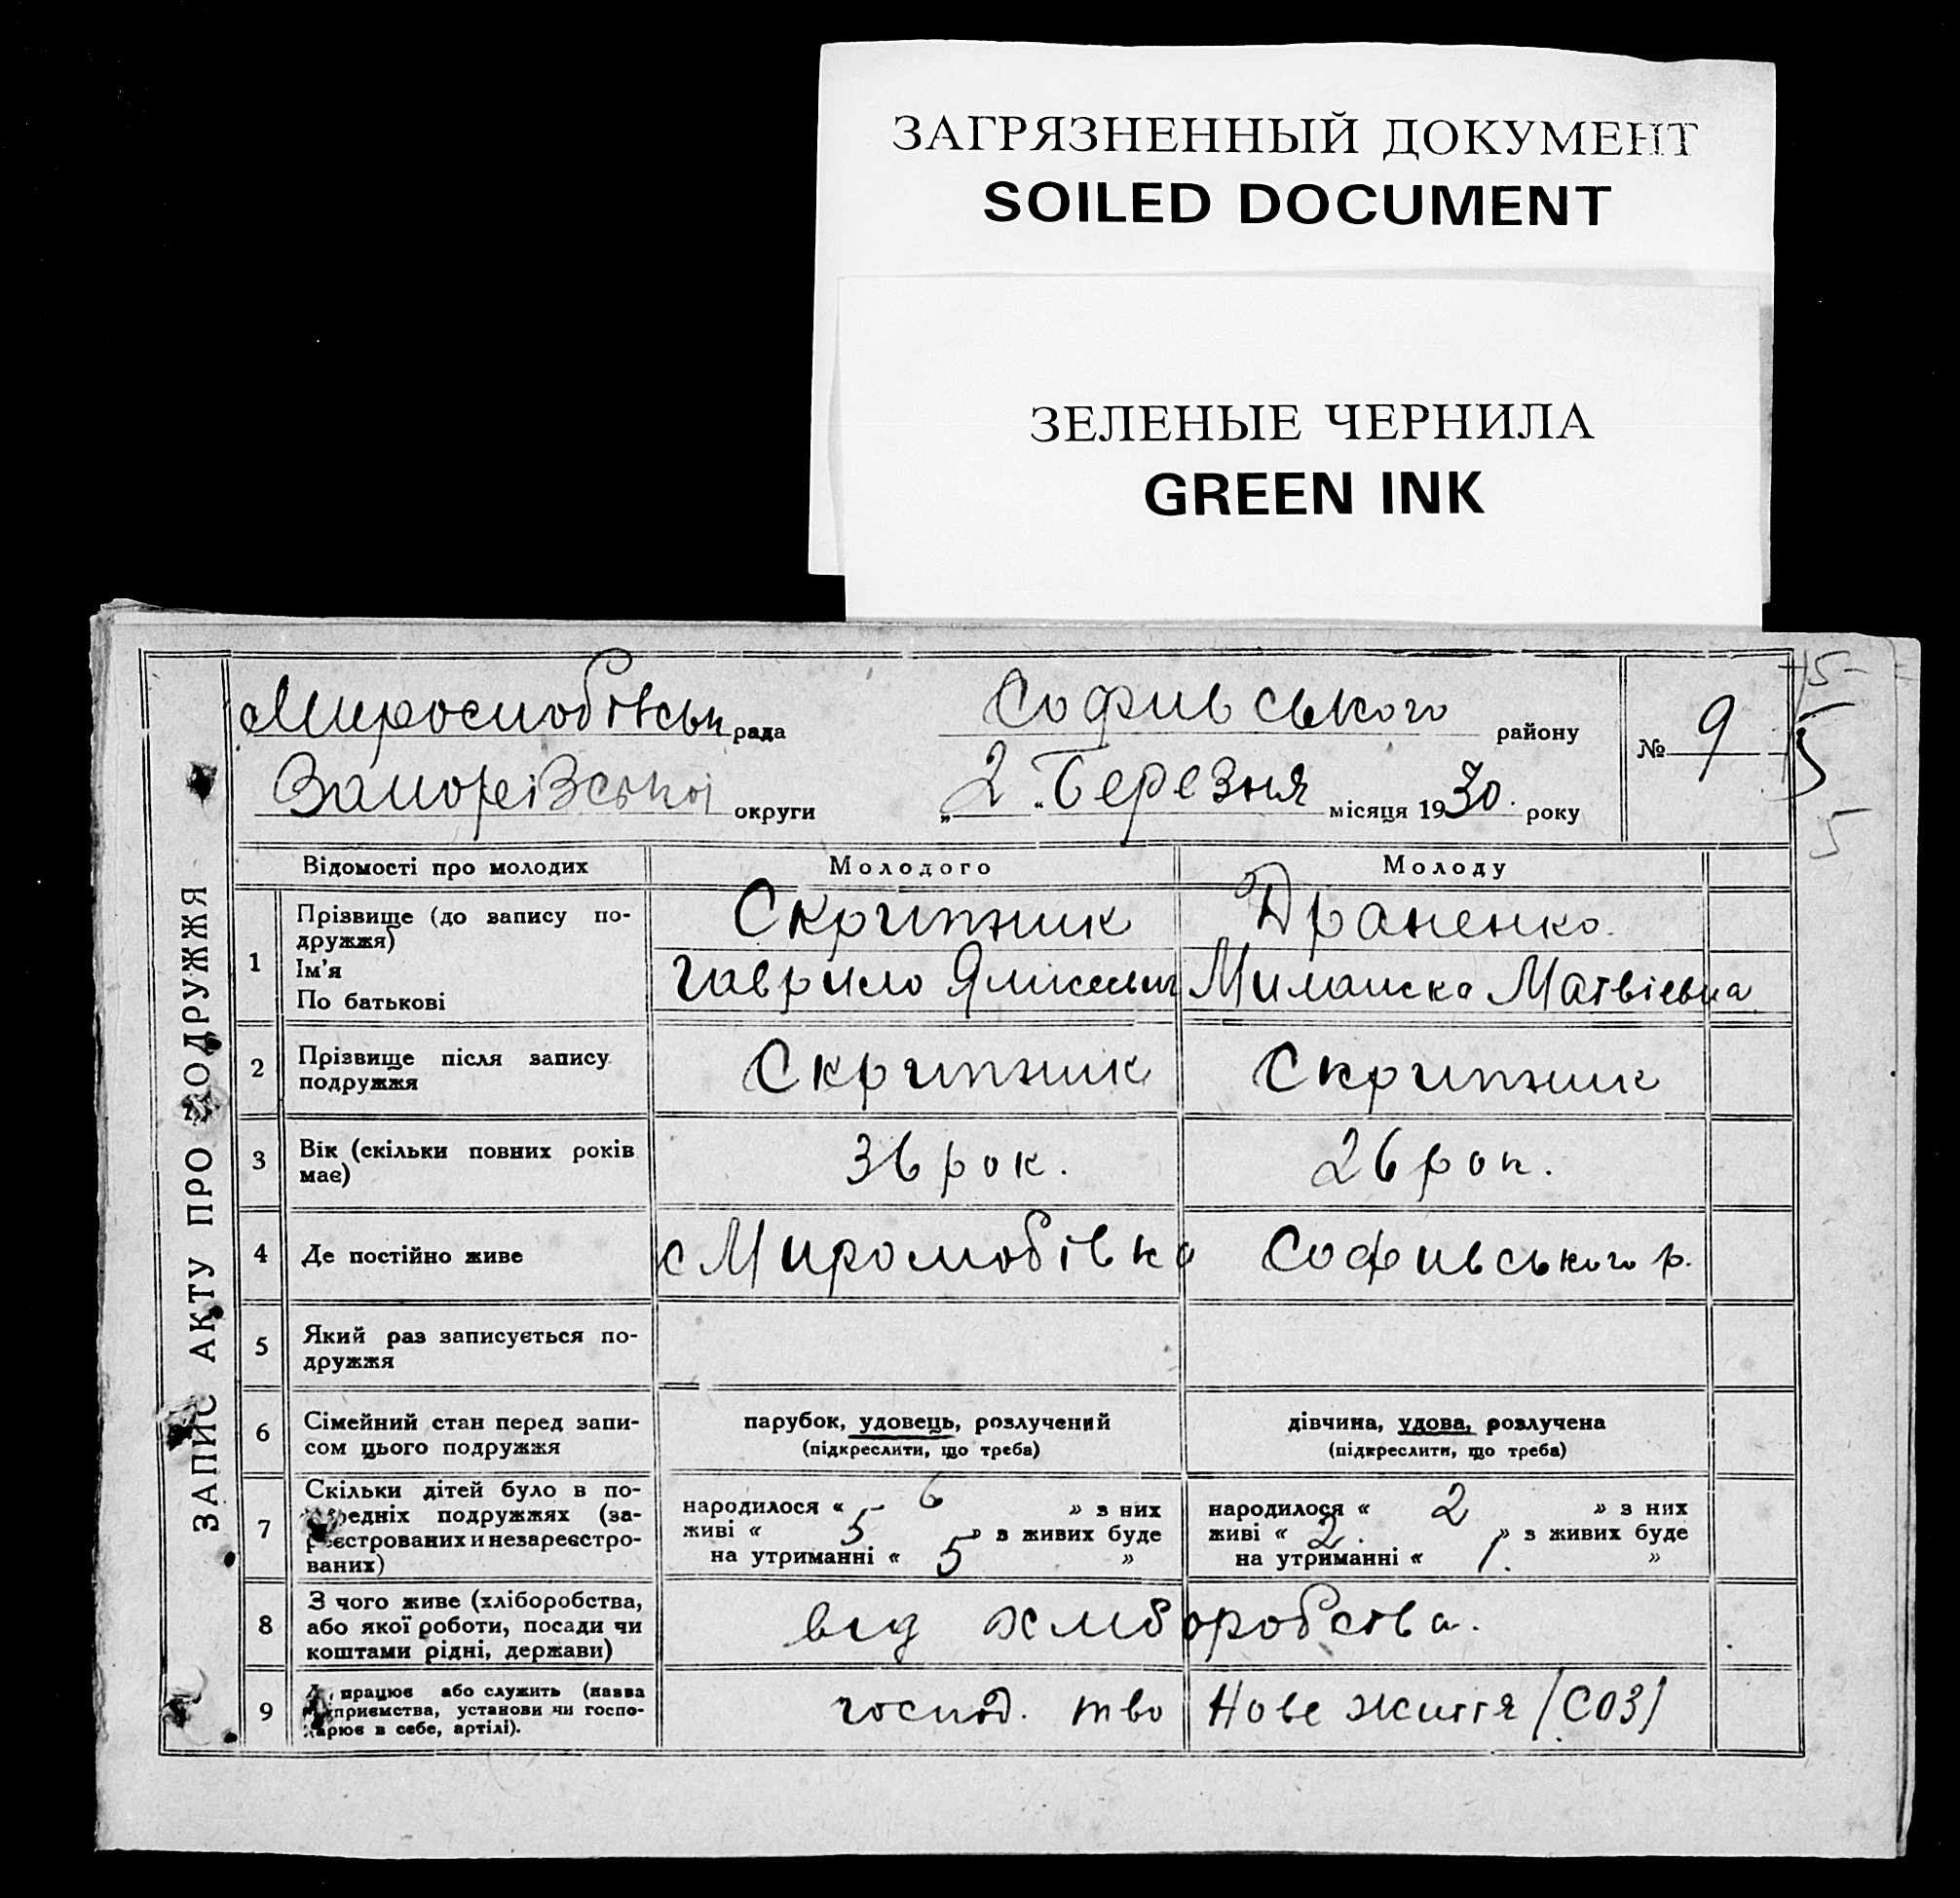 ЗАГРЯЗНЕННЫЙ ДОКУМЕНТ
SOILED DOCUMENT
ЗЕЛЕНЫЕ ЧЕРНИЛА
GREEN INK
ЗАПИС АКТУ ПРО ПОДРУЖЖЯ
рада Софивського району № 9
округи „2“ Березня місяця 1930. року
Відомості про молодих Молодого Молоду
1 Прізвище (до запису по-
дружжя) Скрипник Драненко.
Ім'я
По батькові Гаврило Миланска Матвіевна
2 Прізвище після запису
подружжя Скрипник Скрипник
3 Вік (скільки повних років
має) 36 рок. 26 рок.
4 Де постійно живе с Миромобівка Софивського р.
5 Який раз записується по-
дружжя
6 Сімейний стан перед запи-
сом цього подружжя
парубок, удовець, розлучений
(підкреслити, що треба)
дівчина, удова, розлучена
(підкреслити, що треба)
7 Скільки дітей було в по-
редніх подружжях (за-
реєстрованих и незареєстро-
ваних)
народилося « 6 » з них
живі « 5 » з живих буде
на утриманні « 5 »
народилося « 2 » з них
живі « 2. » з живих буде
на утриманні « 1. »
8 З чого живе (хліборобства,
або якої роботи, посади чи
коштами рідні, держави)
від хліборобства.
9 працює або служить (назва
приємства, установи чи госпо-
дарює в себе, артілі).
господ. тво Нове життя /СОЗ/
5
5
5